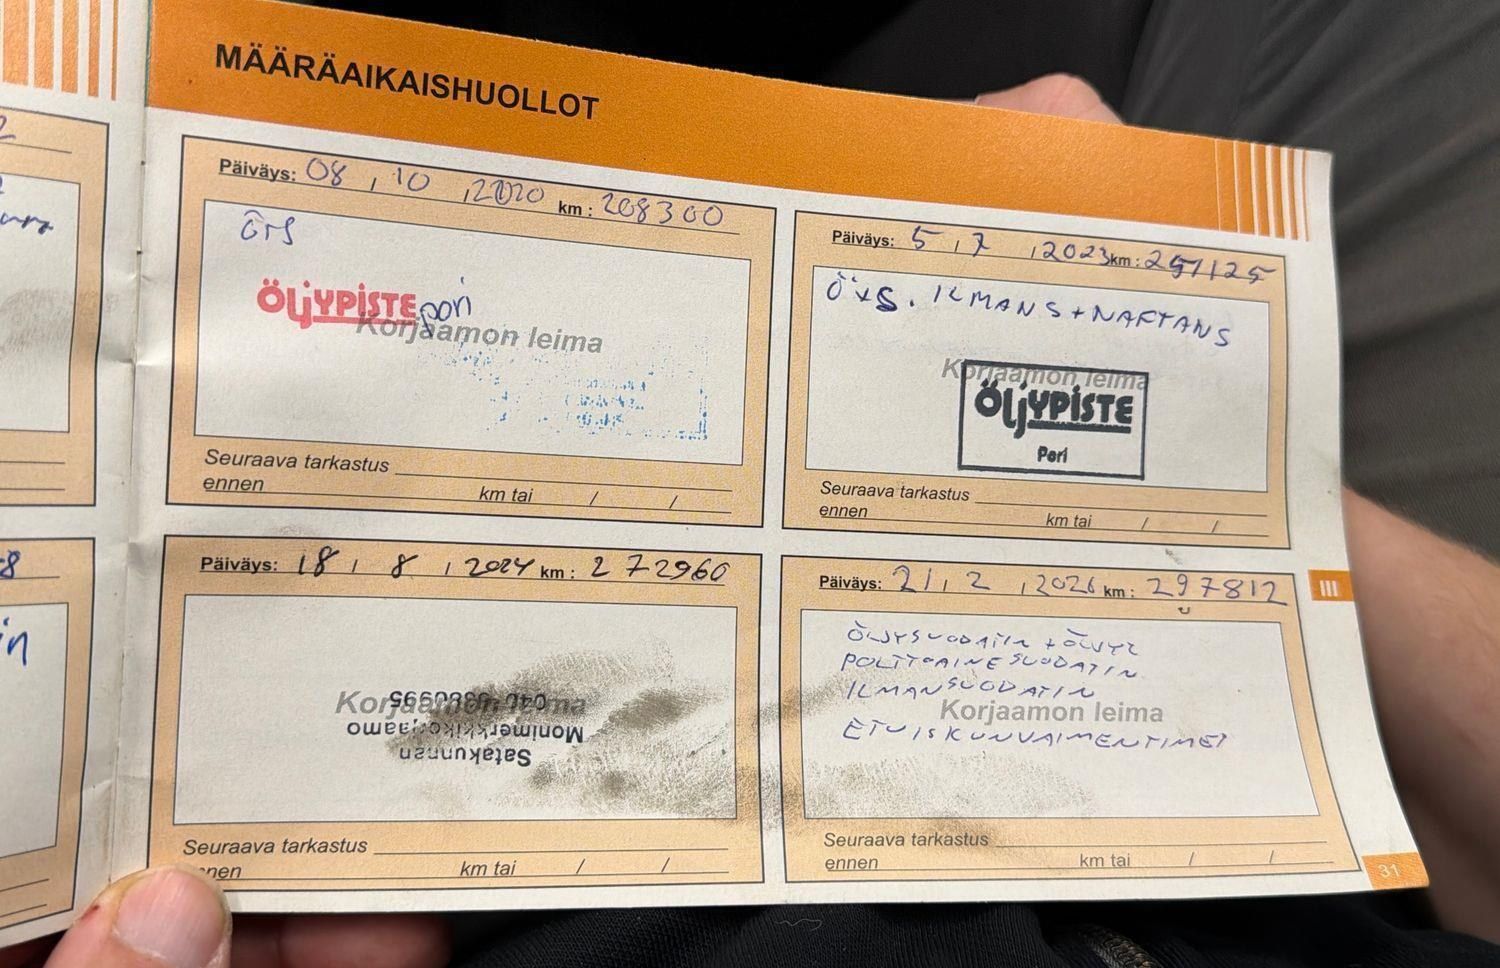 MÄÄRÄAIKAISHUOLLOT
Päiväys: 08 / 10 / 2020 km: 208300
ÖTS
ÖLJYPISTE pori
Korjaamon leima
Seuraava tarkastus
ennen km tai / /
Päiväys: 5 / 7 / 2023 km: 251125
Ö+S. ILMANS + NAFTANS
Korjaamon leima
ÖLJYPISTE
Pori
Seuraava tarkastus
ennen km tai / /
Päiväys: 18 / 8 / 2024 km: 272960
Korjaamon leima
Satakunnan
Monimerkkikorjaamo
Seuraava tarkastus
ennen km tai / /
Päiväys: 21 / 2 / 2026 km: 297812
ÖLJYSUODATIN + ÖLJYT
POLTTOAINESUODATIN
ILMANSUODATIN
Korjaamon leima
ETUISKUNVAIMENTIMET
Seuraava tarkastus
ennen km tai / /
III
31